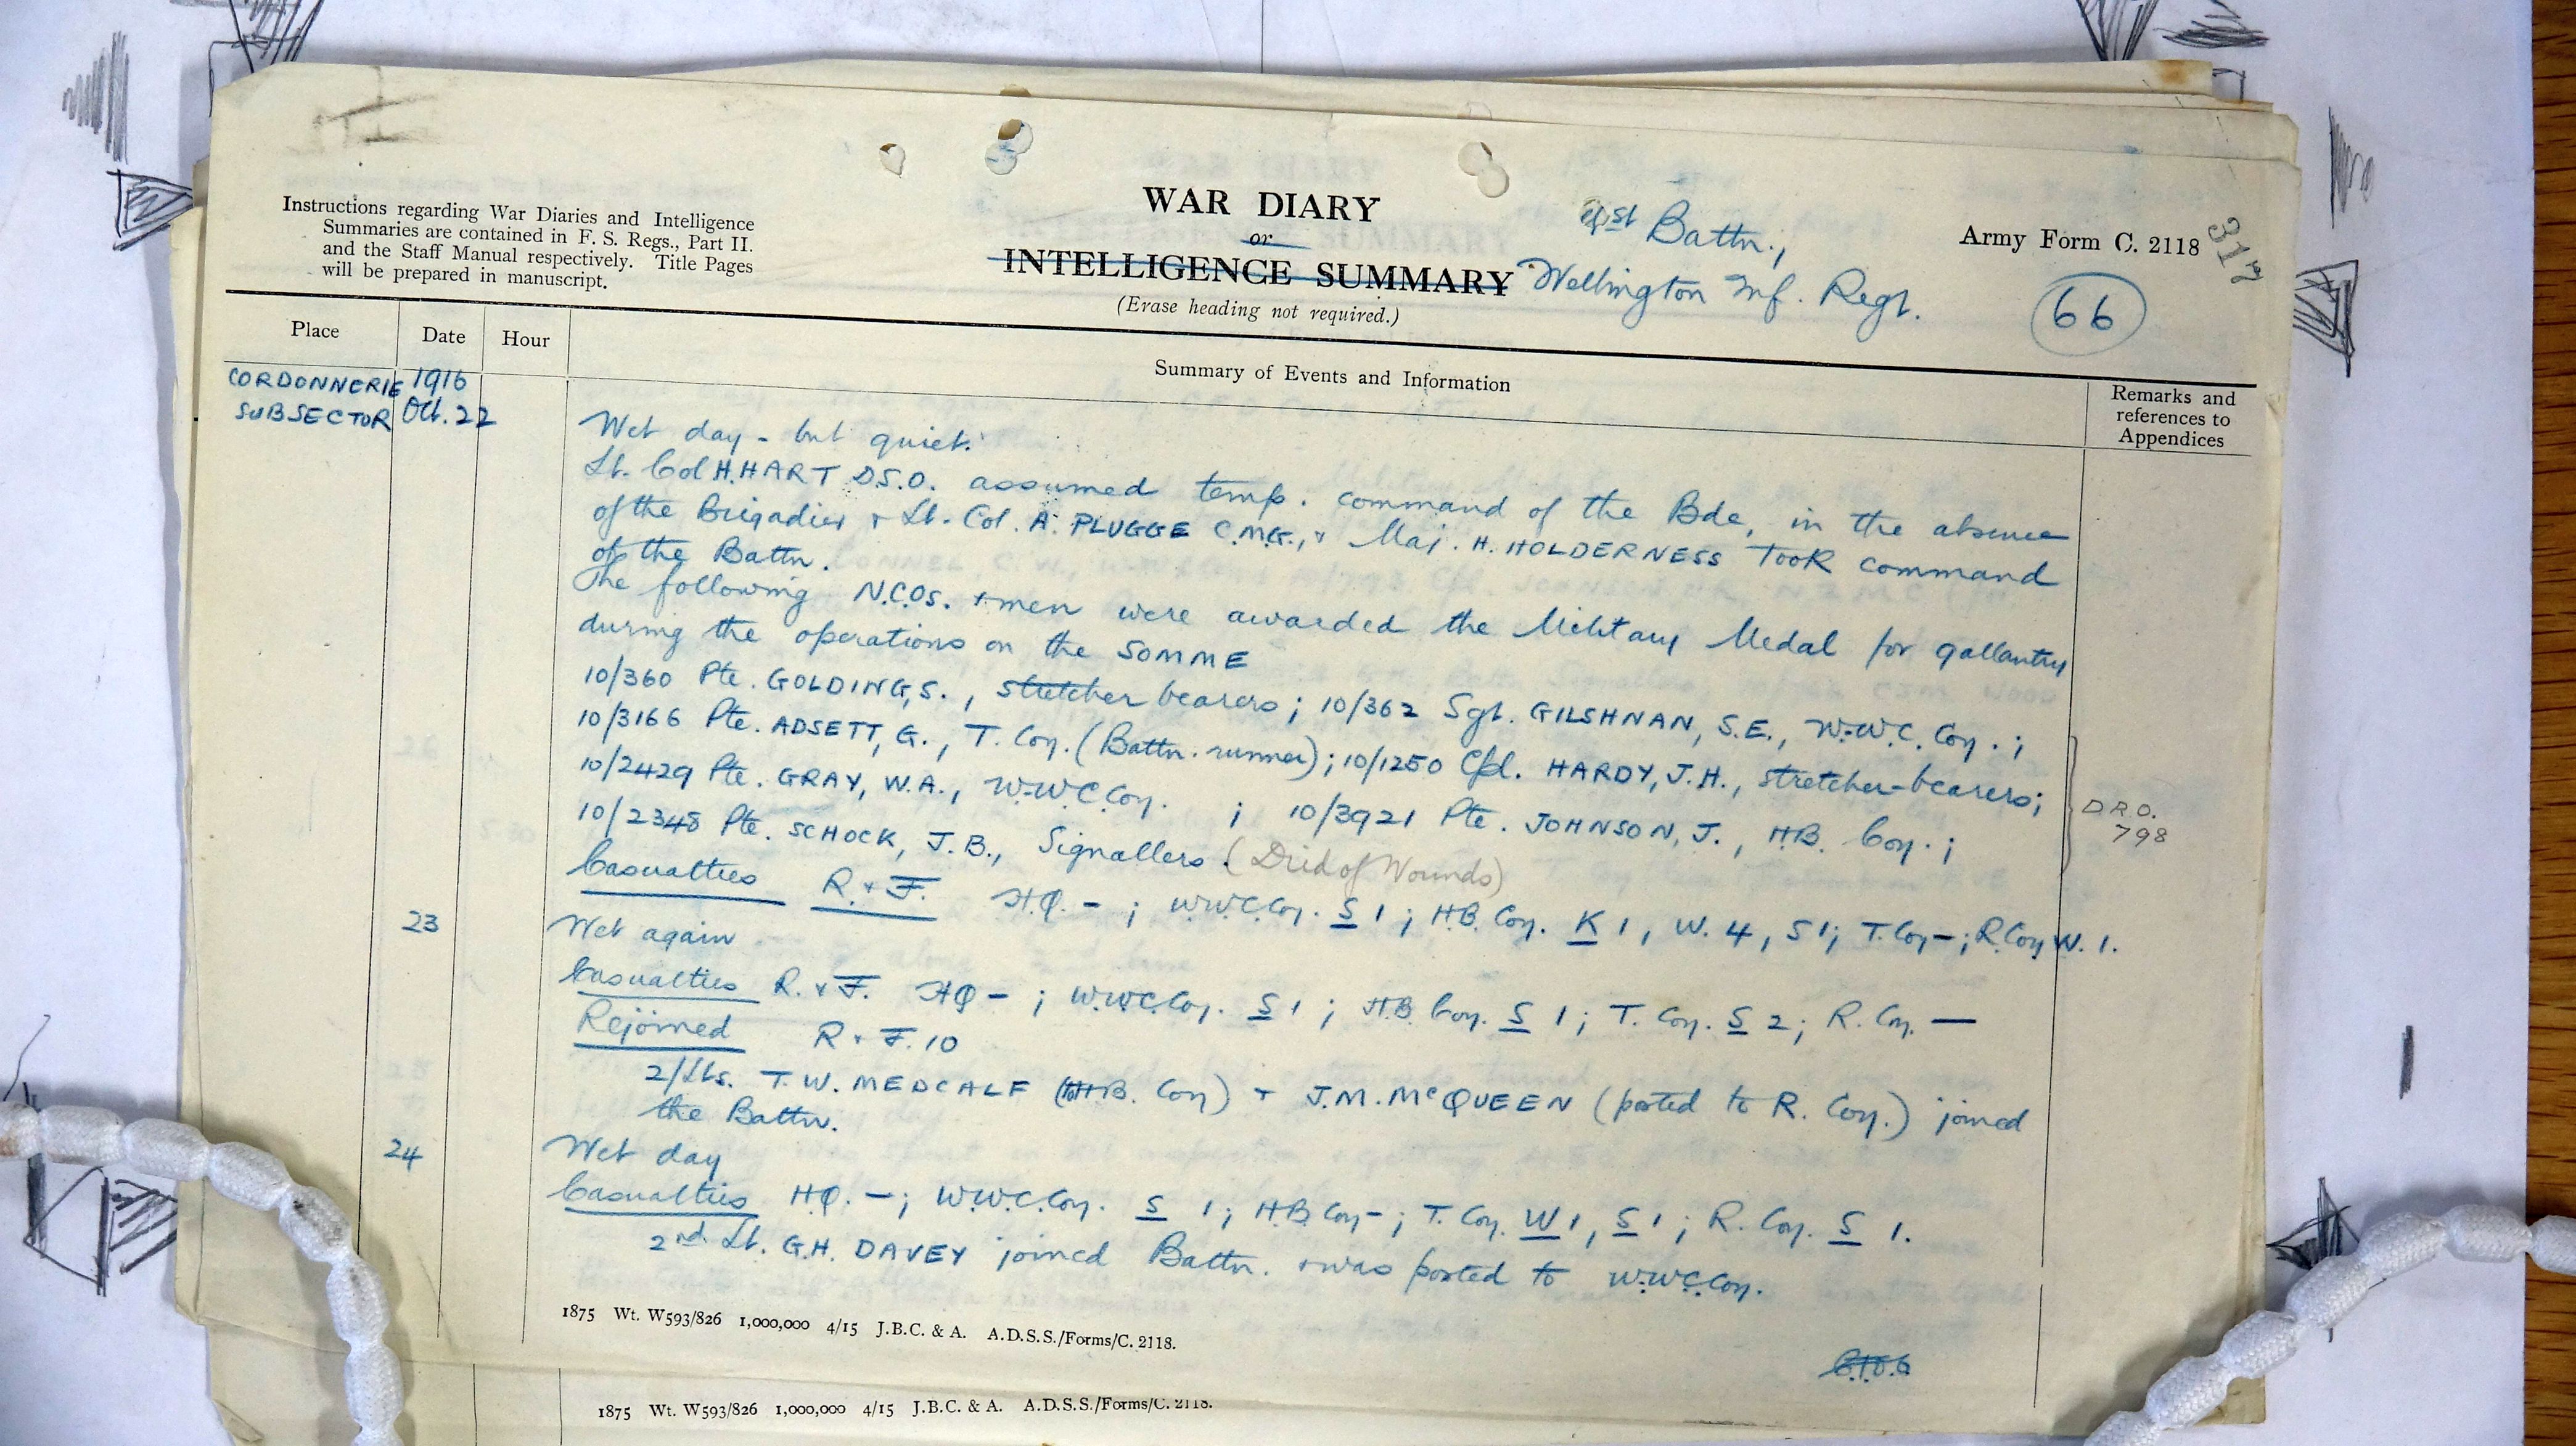 Instructions regarding War Diaries and Intelligence
Summaries are contained in F. S. Regs., Part II.
and the Staff Manual respectively. Title Pages
will be prepared in manuscript.
WAR DIARY
or
INTELLIGENCE SUMMARY
(Erase heading not required.)
1st Battn.,
Wellington Inf. Regt.
Army Form C. 2118
317
66
Place
Date
Hour
Summary of Events and Information
Remarks and
references to
Appendices
CORDONNERIE 1916
SUBSECTOR Oct. 22
Wet day - but quiet.
Lt. Col H. HART D.S.O. assumed temp. command of the Bde, in the absence
of the Brigadier + Lt. Col. A. PLUGGE C.M.G., + Maj. H. HOLDERNESS TOOK command
of the Battn.
The following N.C.Os. + men were awarded the Military Medal for gallantry
during the operations on the SOMME
10/360 Pte. GOLDING, S., stretcher bearers; 10/362 Sgt. GILSHNAN, S.E., W.W.C. Coy.;
10/3166 Pte. ADSETT, G., T. Coy. (Battn. runner); 10/1250 Cpl. HARDY, J.H., stretcher-bearers;
10/2429 Pte. GRAY, W.A., W.W.C. Coy. ; 10/3921 Pte. JOHNSON, J., H.B. Coy.;
10/2348 Pte. SCHOCK, J.B., Signallers. (Died of Wounds)
D.R.O.
798
Casualties R. + F. H.Q. - ; W.W.C. Coy. S 1; H.B. Coy. K 1, W. 4, S 1; T. Coy -; R. Coy W. 1.
23 Wet again
Casualties R. + F. HQ - ; W.W.C. Coy. S 1; H.B. Coy. S 1; T. Coy. S 2; R. Coy. —
Rejoined R + F. 10
2/Lts. T. W. MEDCALF (H.B. Coy) + J.M. McQUEEN (posted to R. Coy.) joined
the Battn.
24 Wet day
Casualties HQ. -; W.W.C. Coy. S 1; H.B. Coy -; T. Coy. W 1, S 1; R. Coy. S 1.
2nd. Lt. G.H. DAVEY joined Battn. + was posted to W.W.C. Coy.
1875 Wt. W593/826 1,000,000 4/15 J.B.C. & A. A.D.S.S./Forms/C. 2118.
1875 Wt. W593/826 1,000,000 4/15 J.B.C. & A. A.D.S.S./Forms/C. 2118.